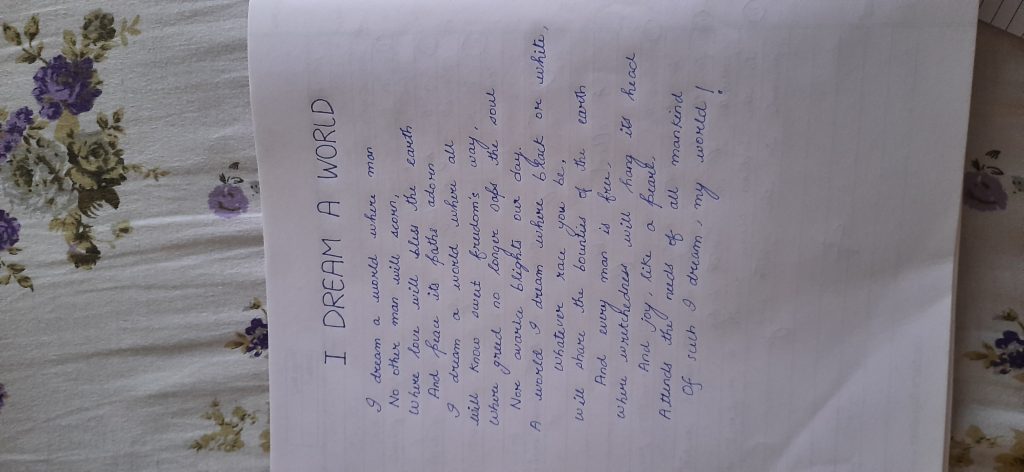 I DREAM A WORLD
I dream a world where man
No other man will scorn,
Where love will bless the earth
And peace its paths adorn.
I dream a world where all
Will know sweet freedom's way,
Where greed no longer saps the soul
Nor avarice blights our day.
A world I dream where black or white,
Whatever race you be,
Will share the bounties of the earth
And every man is free,
Where wretchedness will hang its head
And joy, like a pearl,
Attends the needs of all mankind
Of such I dream, my world!